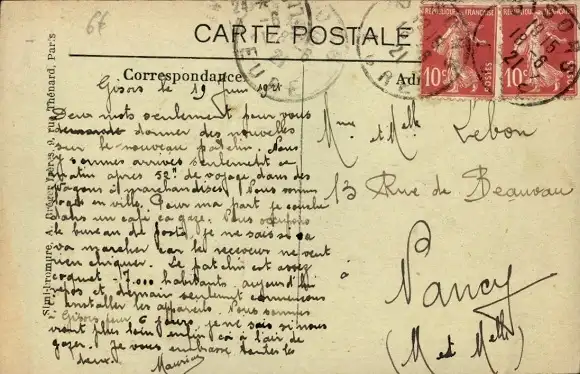 66
CARTE POSTALE
Correspondance
Simi-bromure, A. Bréger frères, 9, rue Thénard, Paris
Gisors le 19 Juin 1921
Deux mots seulement pour vous
donner des nouvelles
sur le nouveau patelin. Nous
y sommes arrivés seulement ce
matin après 52h de voyage dans des
wagons à marchandises. Nous sommes
logés en ville. Pour ma part je couche
dans un café ça gaze. Nous occupons
le bureau de poste, je ne sais si ça
va marcher car le receveur ne veut
rien chiquer. Le patelin est assez
coquet - 7.000 habitants, aujourd'hui
repos et demain seulement commençons
installer les appareils. Nous sommes
Gisors pour 6 jours, je ne sais si nous
irons plus loin enfin ça à l'air de
gazer. Je vous embrasse toutes les
deux. Maurice
RÉPUBLIQUE FRANÇAISE
10c
POSTES
RÉPUBLIQUE FRANÇAISE
10c
POSTES
GISORS
EURE
Mme et Melle Lebon
13 Rue de Beauvau
à
Nancy
(M et Melle)